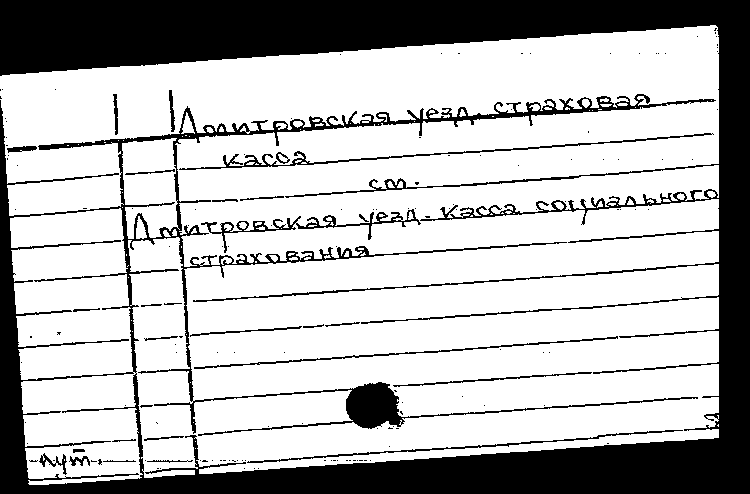 Дмитровская уезд. страховая
касса
см.
Дмитровская уезд. касса социального
страхования